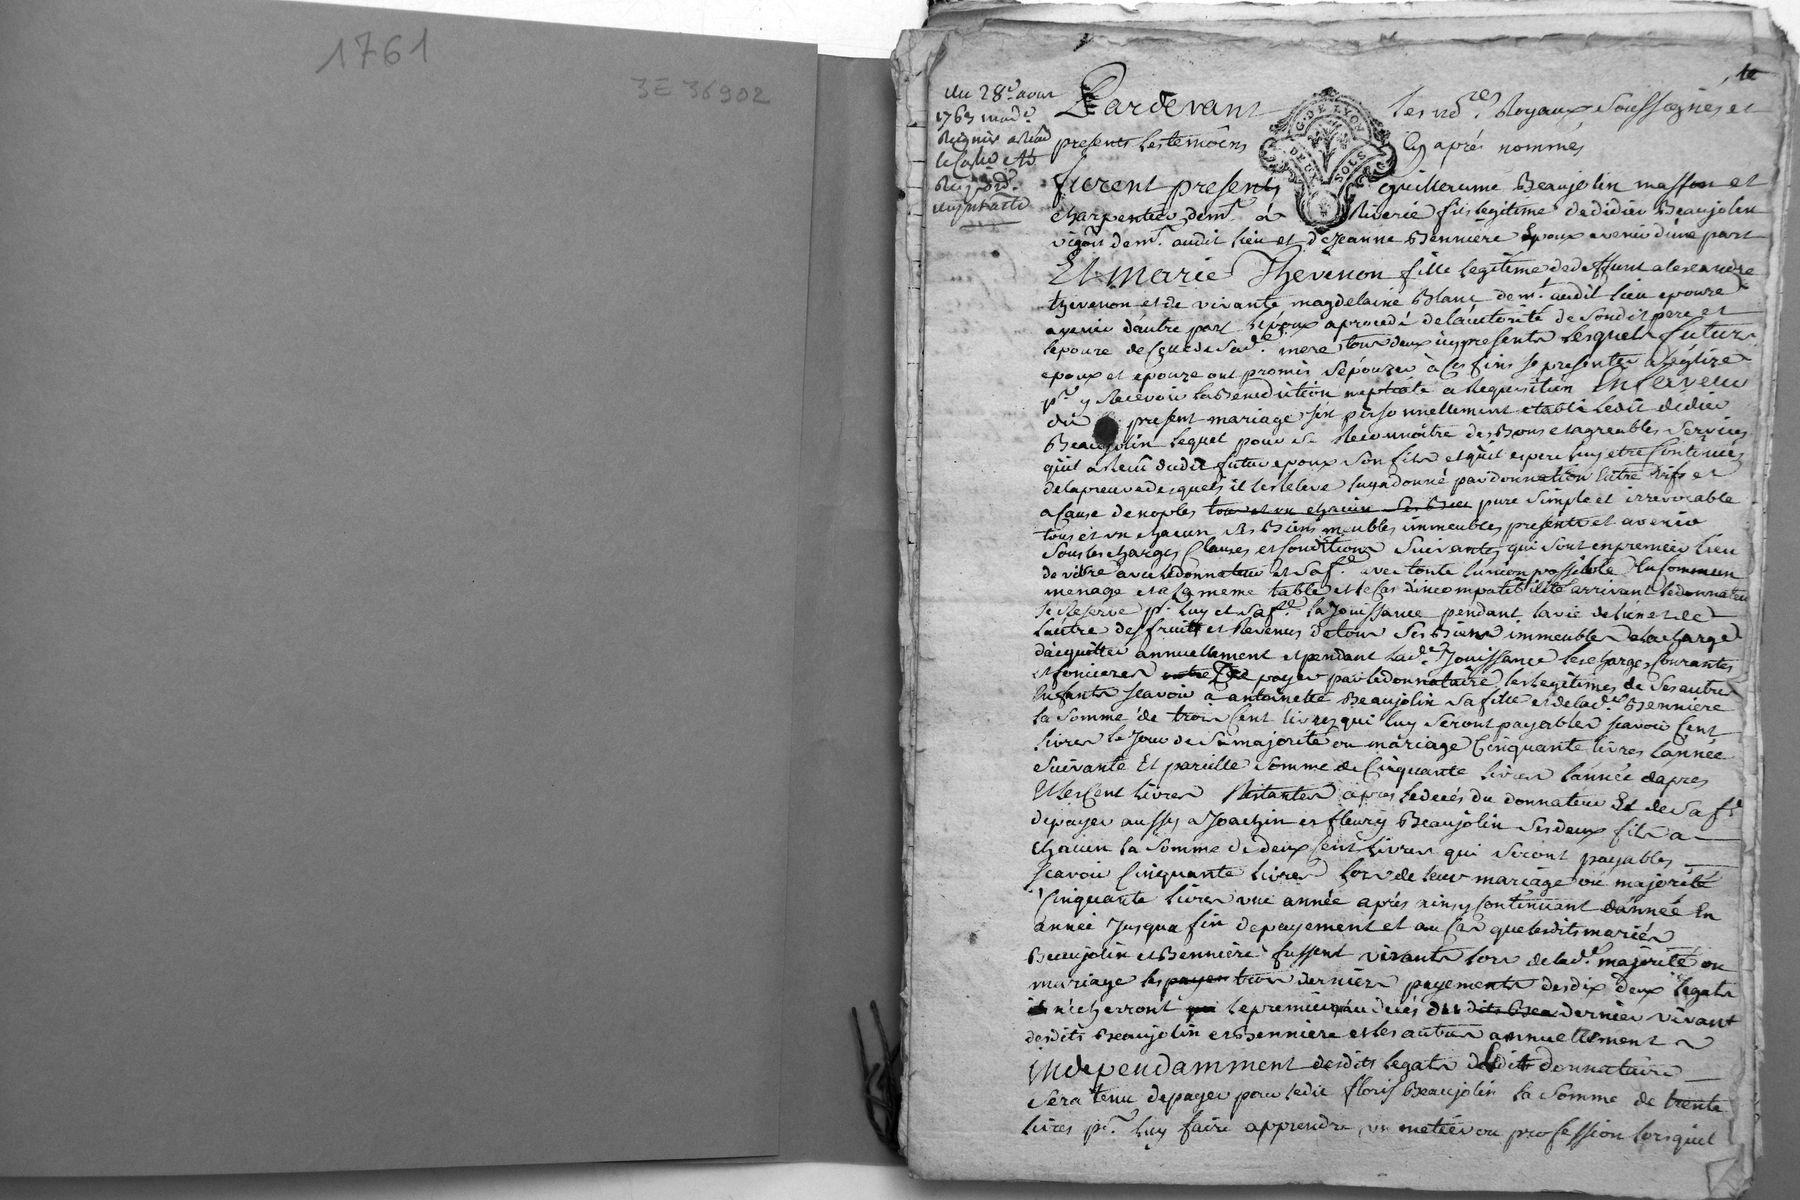 1761
3E 36902
du 28e. aout
1763
1e
Pardevant les no.res Royaux soussignés et
presents les temoins cy après nommés
furent presents guilleaume Beaujolin masson et
charpentier dem.t à Riverie fils legitime de didier Beaujolin
vigon dem.t audit lieu et de Jeanne Bennière Epoux avenir d'une part
Et marie Thevenon fille legitime de deffunt alexandre
thevenon et de vivante magdelaine Blanc dem.t audit lieu epouze
avenir d'autre part l'époux aprocedé de l'autorité de sondit pere et
l'epouze de celle de sad.e mere tous deux icy presents lesquels futurs
epoux et epouze ont promis s'épouzer à ces fins se presenter à l'églize
p.r y Recevoir la Benediction nuptiale a Requisition En faveur
du present mariage s'est personnellement etabli ledit didier
Beaujolin lequel pour se Reconnoitre des Bons et agreables services
qu'il a Receu dudit futur epoux son fils et qu'il espere luy etre Continués
de la preuve desquels il les Releve luy a donné par donnation Entre vifs et
a Cause de noples tous et un chacun ses Biens pure simple et irrevocable
tous et un chacun ses Biens meubles immeubles presents et avenir
sous les charges Clauses et Conditions suivantes qui sont en premier lieu
de vivre avec le donnateur et sa f.e avec toute l'union possible En Commun
menage et a la meme table et le Cas d'incompatibilité arrivant le donnateur
se Reserve p.r luy et sa f.e la Jouissance pendant la vie de l'un et de
l'autre des fruits et Revenus de tous ses Biens immeubles a la charge
d'acquitter annuellement et pendant lad.e Jouissance les charges Courantes
et foncieres De payer par le donnataire les legitimes de ses autres
Enfants scavoir à antoinette Beaujolin sa fille et de lad.e Bennière
la somme de trois Cent livres qui luy seront payables scavoir Cent
livres le Jour de sa majorité ou mariage Cinquante livres l'année
suivante Et pareille somme de Cinquante livres l'année d'apres
Et les Cent livres Restantes après le decés du donnateur Et de sa f.e
de payer aussy a Joachin et fleury Beaujolin ses deux fils a
chacun la somme de deux Cent livres qui seront payables
scavoir Cinquante livres lors de leur mariage ou majorité
Cinquante livres une année après ainsy Continuant d'année En
année Jusqu'a fin de payement et au Cas que lesdits mariés
Beaujolin et Bennière fussent vivants lors de lad.e majorité ou
mariage les payen trois derniers payements desdix deux legats
n'écherront que le premier qu'au decés du dits Bea dernier vivant
desdits Beaujolin et Bennière et les autres annuellement
Independamment desdits legats ledit donnataire
sera tenu de payer pour ledit floris Beaujolin la somme de trente
livres p.r luy faire apprendre un metier ou profession lorsquil
G. DE LYON
DEUX SOLS